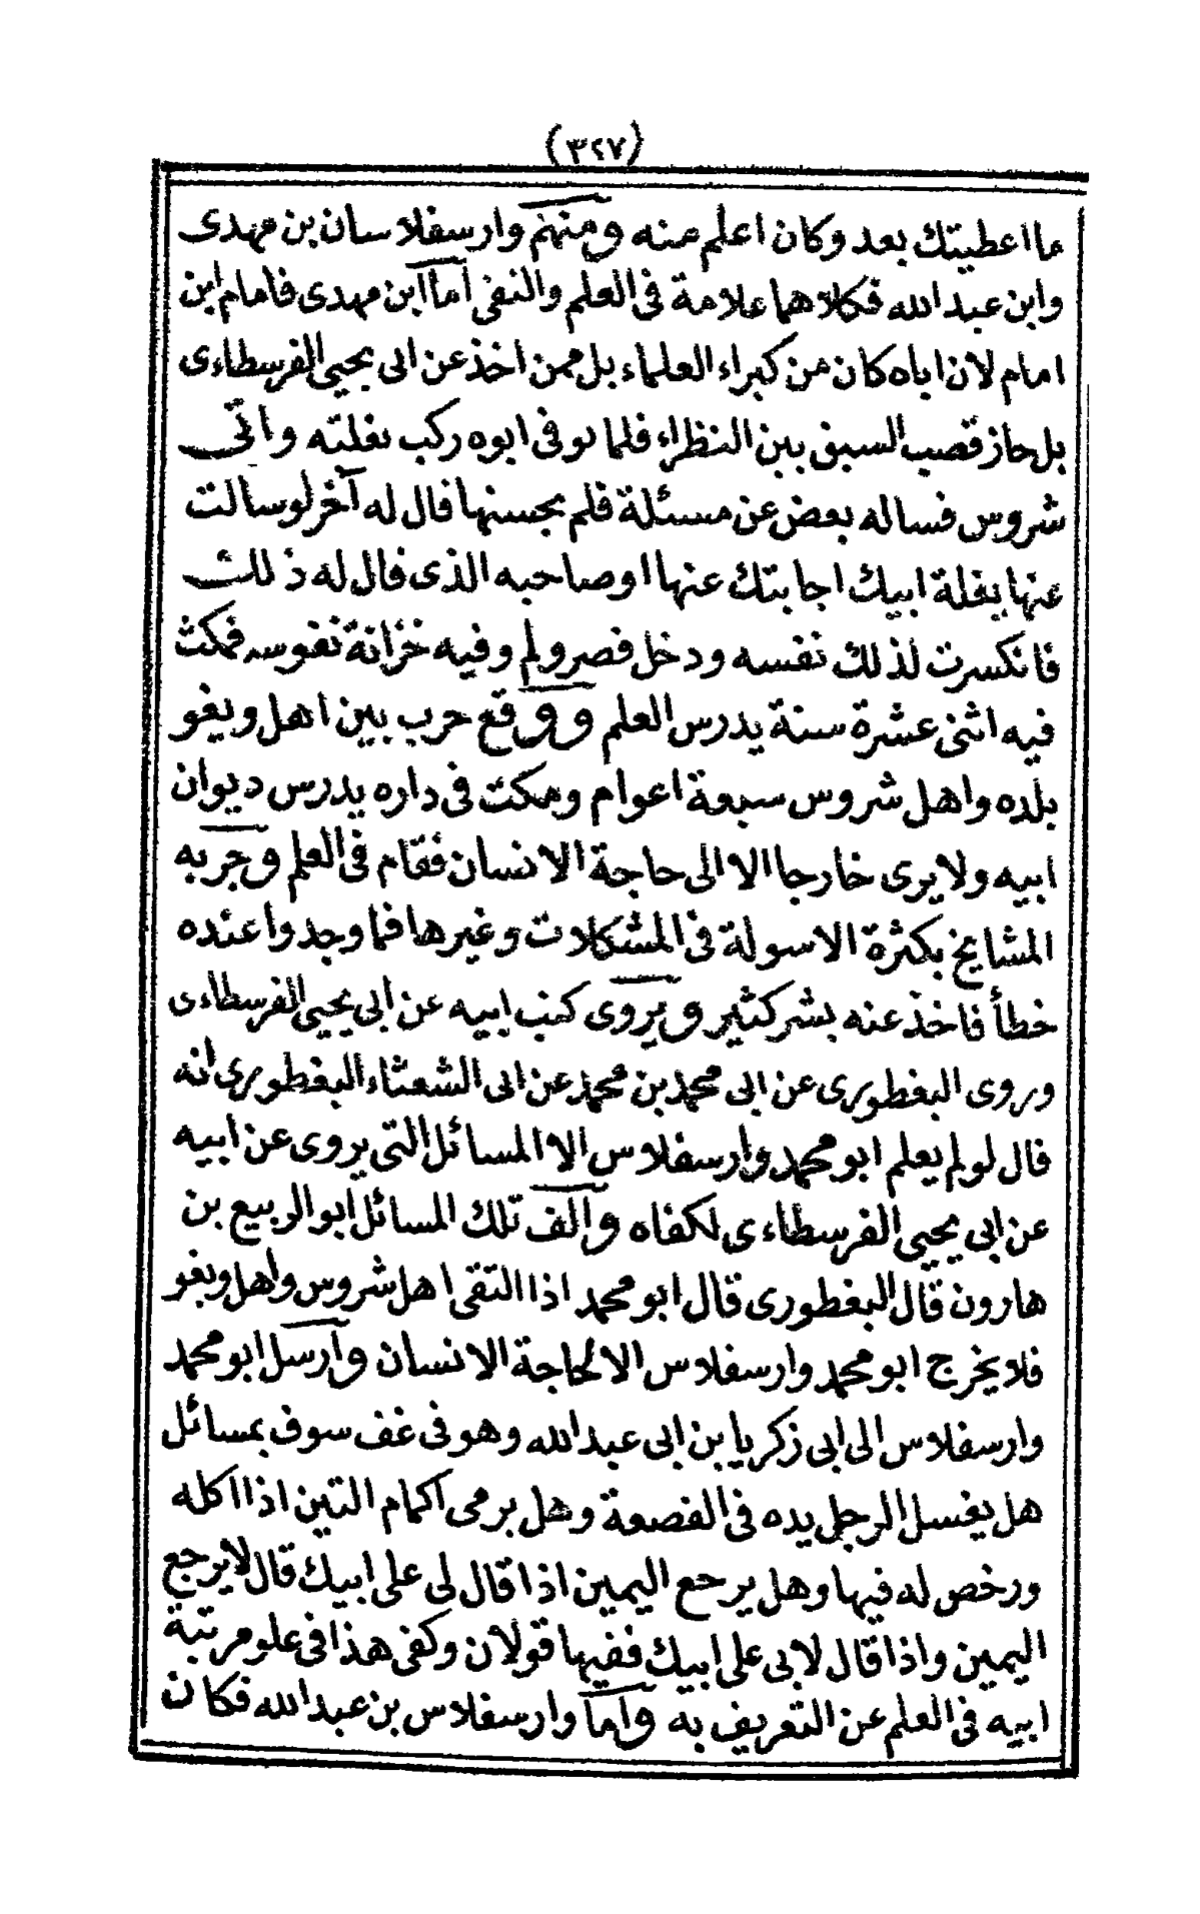 (٣٢٧)
ما اعطيتك بعد وكان اعلم منه ومنهم وارسفلاسان بن مهدى
وابن عبد الله فكلاهما علامة فى العلم والنفى أما ابن مهدى فامام ابن
امام لان اباه كان من كبراء العلماء بل ممن اخذ عن ابى يحيى الفرسطاءى
بل حاز قصب السبق بين النظراء فلما توفى ابوه ركب بغلته واتى
شروس فساله بعض عن مسئلة فلم يحسنها فال له آخر لو سالت
عنها بغلة ابيك اجابتك عنها او صاحبه الذى قال له ذلك
فانكسرت لذلك نفسه ودخل قصر ولم وفيه خزانة نفوسه فمكث
فيه اثنى عشرة سنة يدرس العلم ووقع حرب بين اهل ويغو
بلده واهل شروس سبعة اعوام ومكث فى داره يدرس ديوان
ابيه ولا يرى خارجا الا الى حاجة الانسان فقام فى العلم وجربه
المشايخ بكثرة الاسولة فى المشكلات وغيرها فما وجدوا عنده
خطأ فاخذ عنه بشر كثير ويروى كتب ابيه عن ابى يحيى الفرسطاءى
وروى البغطورى عن ابى محمد بن محمد عن ابى الشعثاء البغطورى انه
قال لو لم يعلم ابو محمد وارسفلاس الا المسائل التى يروى عن ابيه
عن ابى يحيى الفرسطاءى لكفاه والف تلك المسائل ابو الربيع بن
هارون قال البغطورى قال ابو محمد اذا التقى اهل شروس واهل ويغو
فلا يخرج ابو محمد وارسفلاس الا لحاجة الانسان وارسل ابو محمد
وارسفلاس الى ابى زكريا بن ابى عبد الله وهو فى غف سوف بمسائل
هل يغسل الرجل يده فى القصعة وهل يرمى اكمام التين اذا اكله
ورخص له فيها وهل يرجع اليمين اذا قال لى على ابيك قال لا يرجع
اليمين واذا قال لابى على ابيك ففيها قولان وكفى هذا فى علو مرتبة
ابيه فى العلم عن التعريف به وأما وارسفلاس بن عبد الله فكان